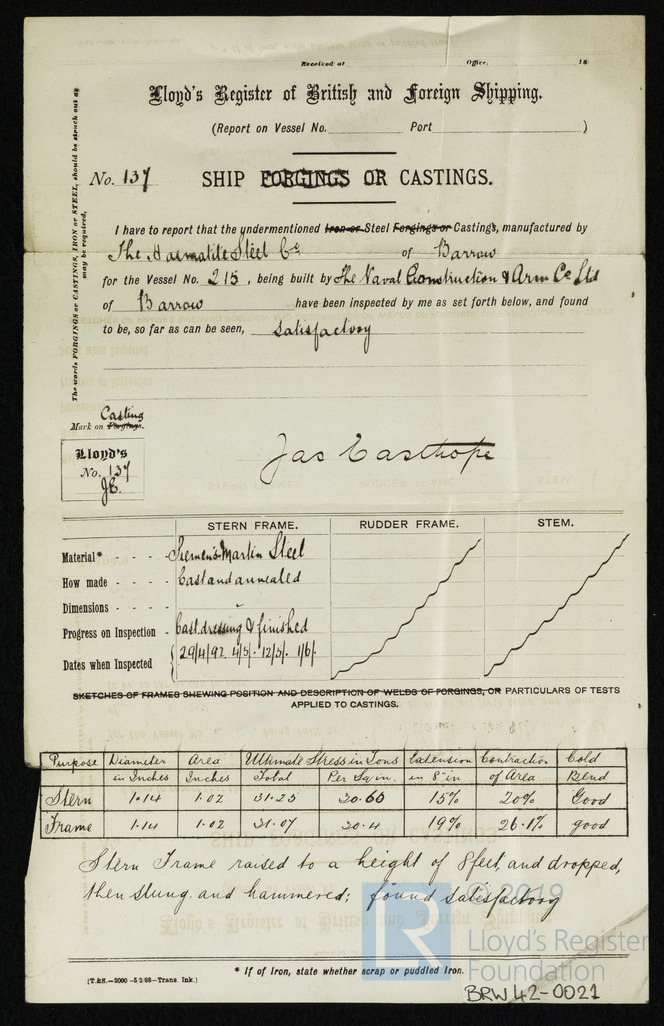 Received at Office, 18
Lloyd's Register of British and Foreign Shipping.
(Report on Vessel No. Port )
No. 137 SHIP FORGINGS OR CASTINGS.
The words FORGINGS or CASTINGS, IRON or STEEL, should be struck out as may be required.
I have to report that the undermentioned Iron or Steel Forgings or Castings, manufactured by
The Haematite Steel Co of Barrow
for the Vessel No. 215, being built by The Naval Construction & Arm Co Ltd
of Barrow have been inspected by me as set forth below, and found
to be, so far as can be seen, satisfactory
Casting
Mark on Forgings.
Lloyd's
No. 137
JE.
Jas Easthope
STERN FRAME. RUDDER FRAME. STEM.
Material* - - - - Siemens Martin Steel
How made - - - - Cast and annealed
Dimensions - - - -
Progress on Inspection - Cast dressing & finished
Dates when Inspected 29/4/92 4/5/. 12/5/. 1/6/.
SKETCHES OF FRAMES SHEWING POSITION AND DESCRIPTION OF WELDS OF FORGINGS, OR PARTICULARS OF TESTS
APPLIED TO CASTINGS.
Purpose Diameter Area Ultimate Stress in Tons Extension Contraction Cold
in Inches Inches Total Per Sq in. in 8" in of Area Bend
Stern 1.14 1.02 31.25 30.60 15% 20% Good
Frame 1.14 1.02 31.07 30.4 19% 26.1% good
Stern Frame raised to a height of 8 feet, and dropped,
then slung and hammered; found satisfactory
© 2019
LR
Lloyd's Register
Foundation
* If of Iron, state whether scrap or puddled Iron.
BRW 42-0021